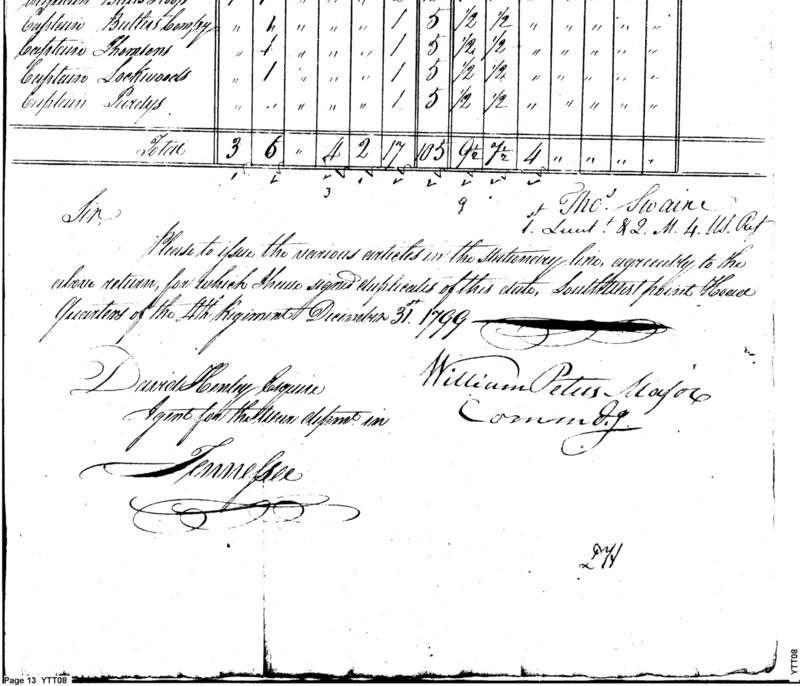 Captain
Captain Butlers Compy " 1 " " " 1 5 1/2 1/2 " " " " "
Captain Thorntons " 1 " " " 1 5 1/2 1/2 " " " " "
Captain Lockwoods " 1 " " " 1 5 1/2 1/2 " " " " "
Captain Purdys " " " " " 1 5 1/2 1/2 " " " " "
Total 3 6 " 4 2 17 105 9½ 7½ 4 " " " "
3 9
Thos. Swaine
1st. Lieut. & Q. M. 4. US. Regt
Sir,
Please to issue the various articles in the stationary line, agreeably to the
above return, for which I have signd duplicates of this date. South West point Head
Quarters of the 4th Regiment December 31st. 1799
David Henley Esquire
Agent for the War depmt in
Tennessee
William Peters Major
Commdg.
DH
Page 13 YTT08
YTT08